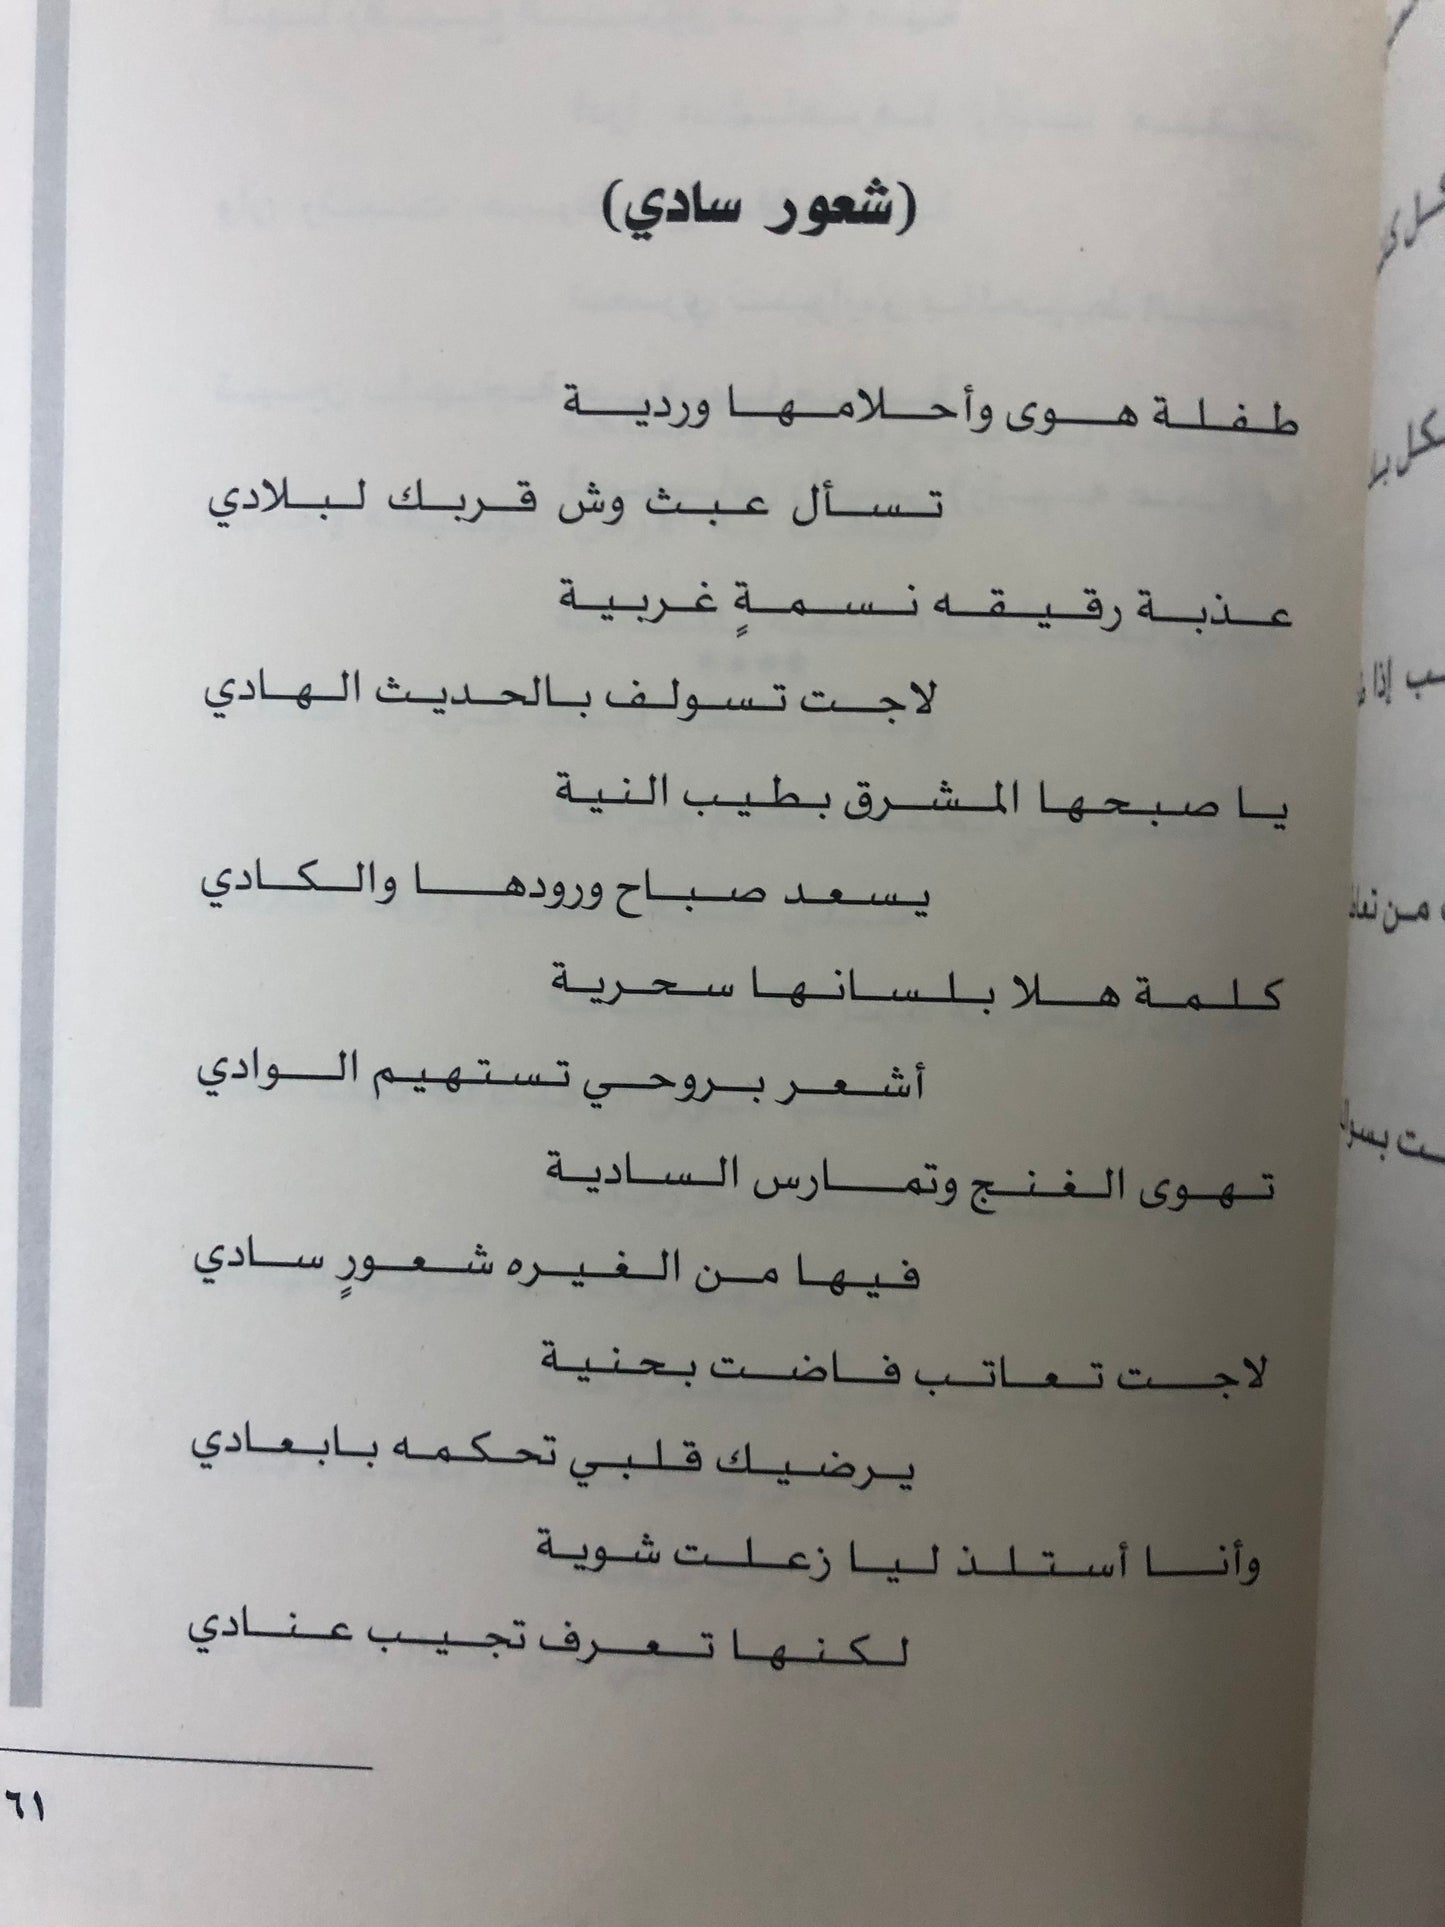 (شعور سادي)
طفلة هوى وأحلامها وردية
تسأل عبث وش قربك لبلادي
عذبة رقيقه نسمةٍ غربية
لاجت تسولف بالحديث الهادي
يا صبحها المشرق بطيب النية
يسعد صباح ورودها والكادي
كلمة هلا بلسانها سحرية
أشعر بروحي تستهيم الوادي
تهوى الغنج وتمارس السادية
فيها من الغيره شعورٍ سادي
لاجت تعاتب فاضت بحنية
يرضيك قلبي تحكمه بابعادي
وأنا أستلذ ليا زعلت شوية
لكنها تعرف تجيب عنادي
٦١